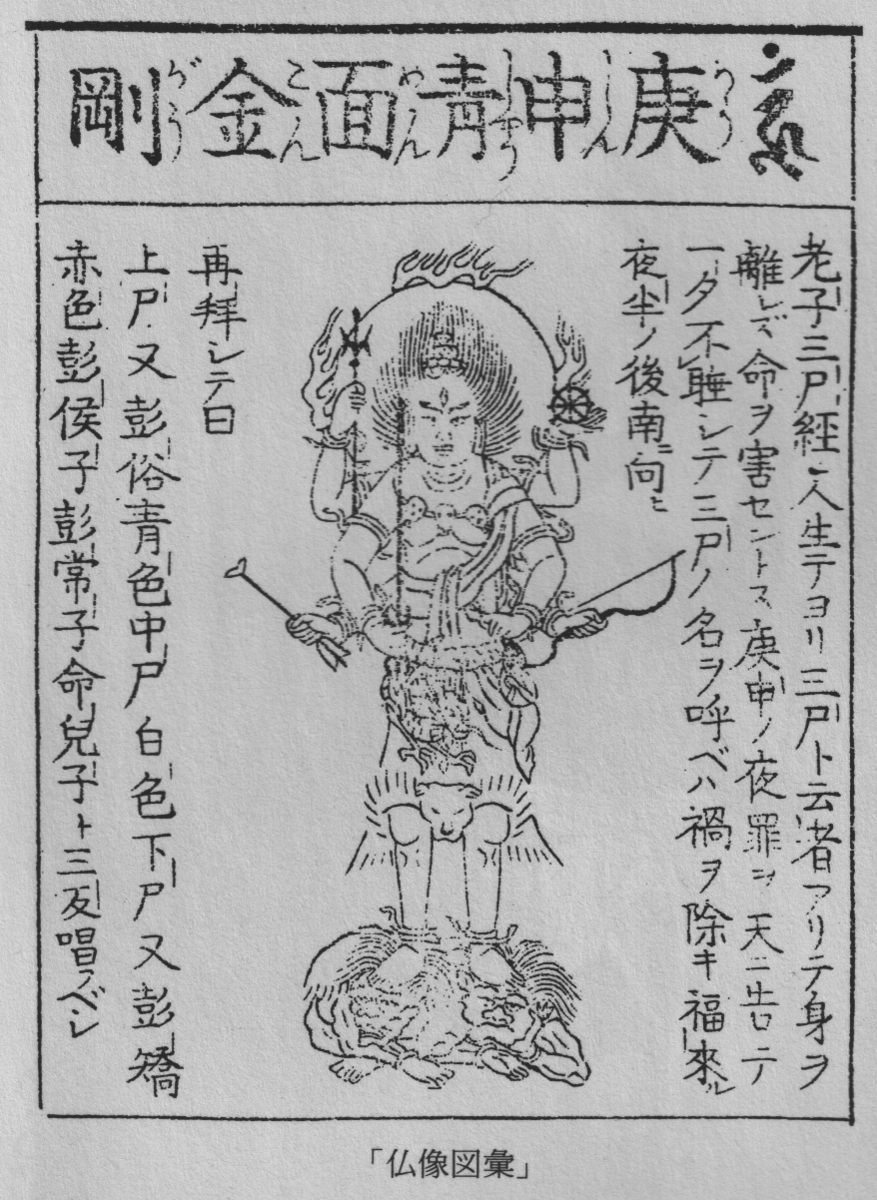 庚申青面金剛
かうしんしやうめんこんがう
老子三尸経ニ人生テヨリ三尸ト云者アリテ身ヲ
離レズ命ヲ害セントス庚申ノ夜罪ヲ天ニ告ロニテ
一夕不睡シテ三尸ノ名ヲ呼ベハ禍ヲ除キ福來ル
夜半ノ後南ニ向ヒ
再拜シテ曰
上尸又彭俗青色中尸白色下尸又彭矯
赤色彭侯子彭常子命兒子ト三反唱フベシ
「仏像図彙」